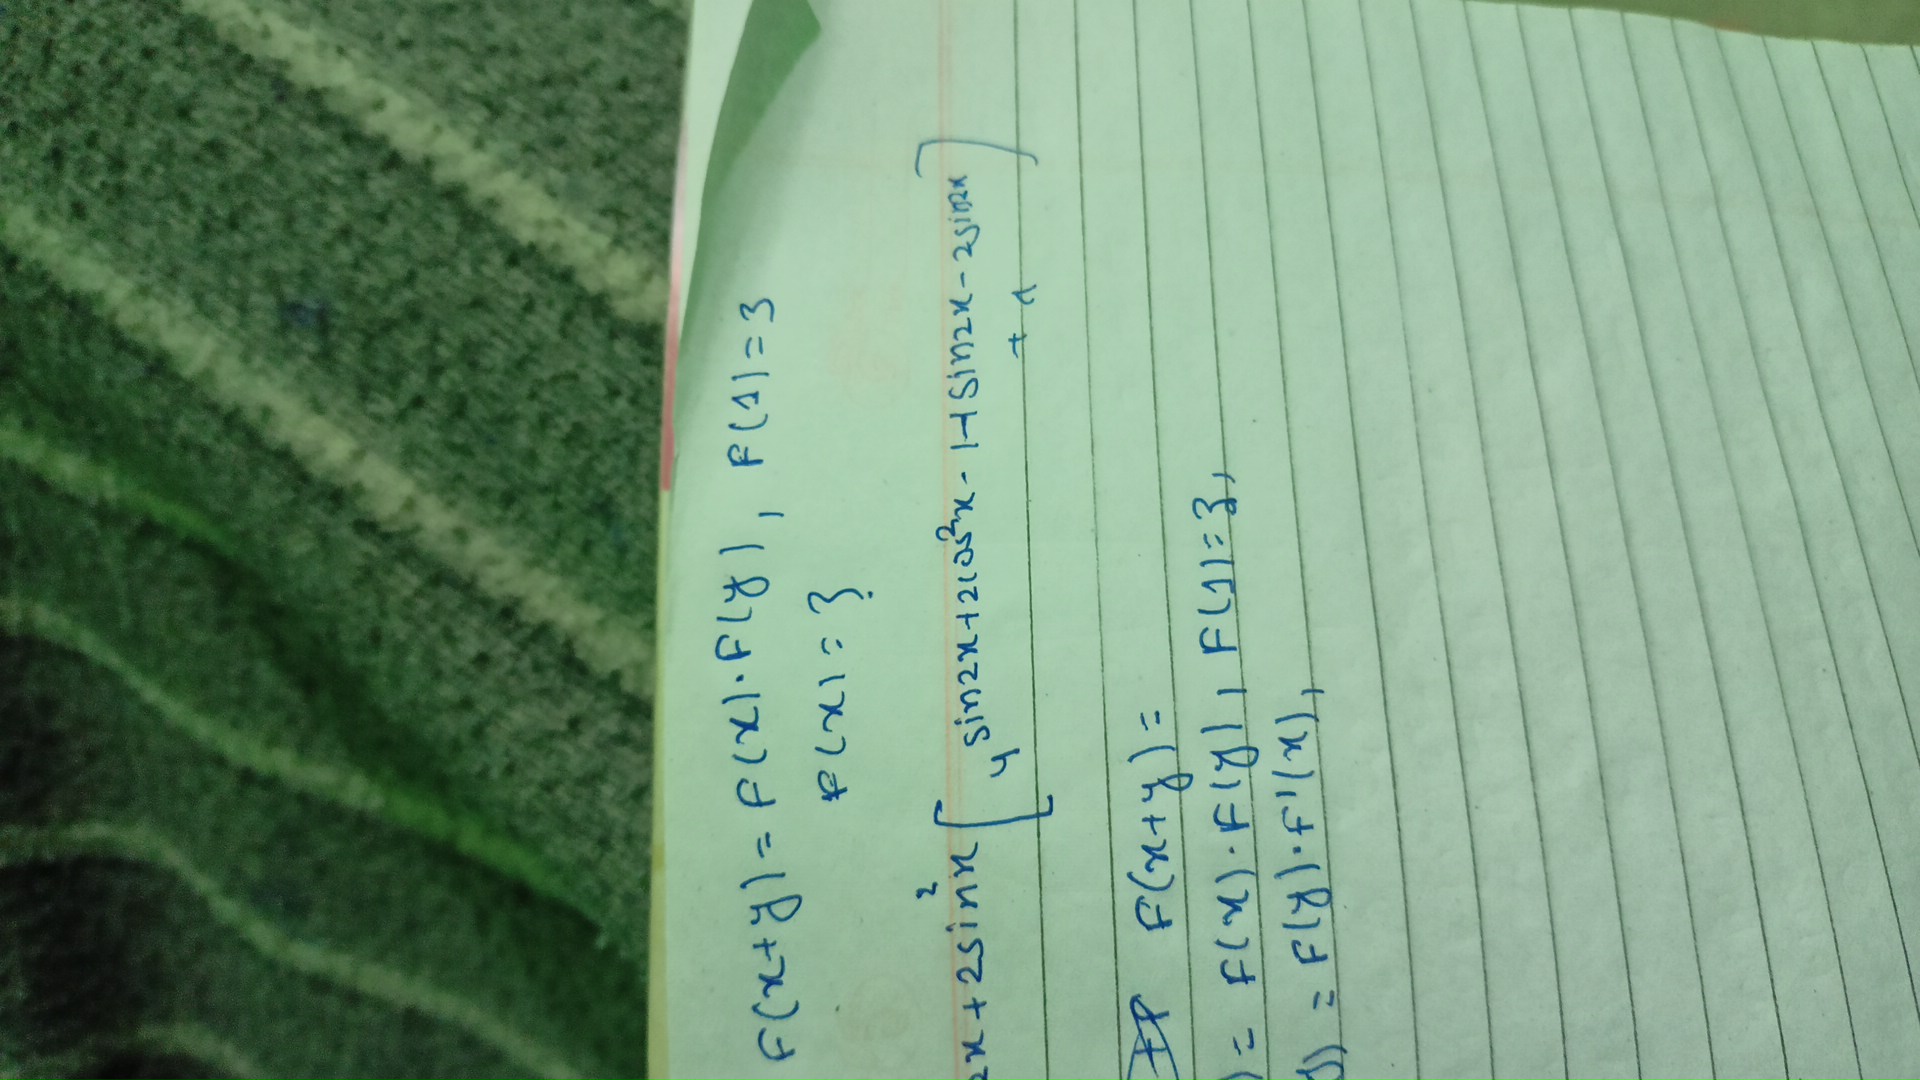 F(x+y) = F(x).F(y), F(1) = 3
F(x) = ?
2x + 2sin²x [ y sin2x + 2cos²x - 1 + sin2x - 2sin2x
+ x ]
F(x+y) =
) = F(x).F(y), F(1) = 3,
)) = F(y).F'(x),